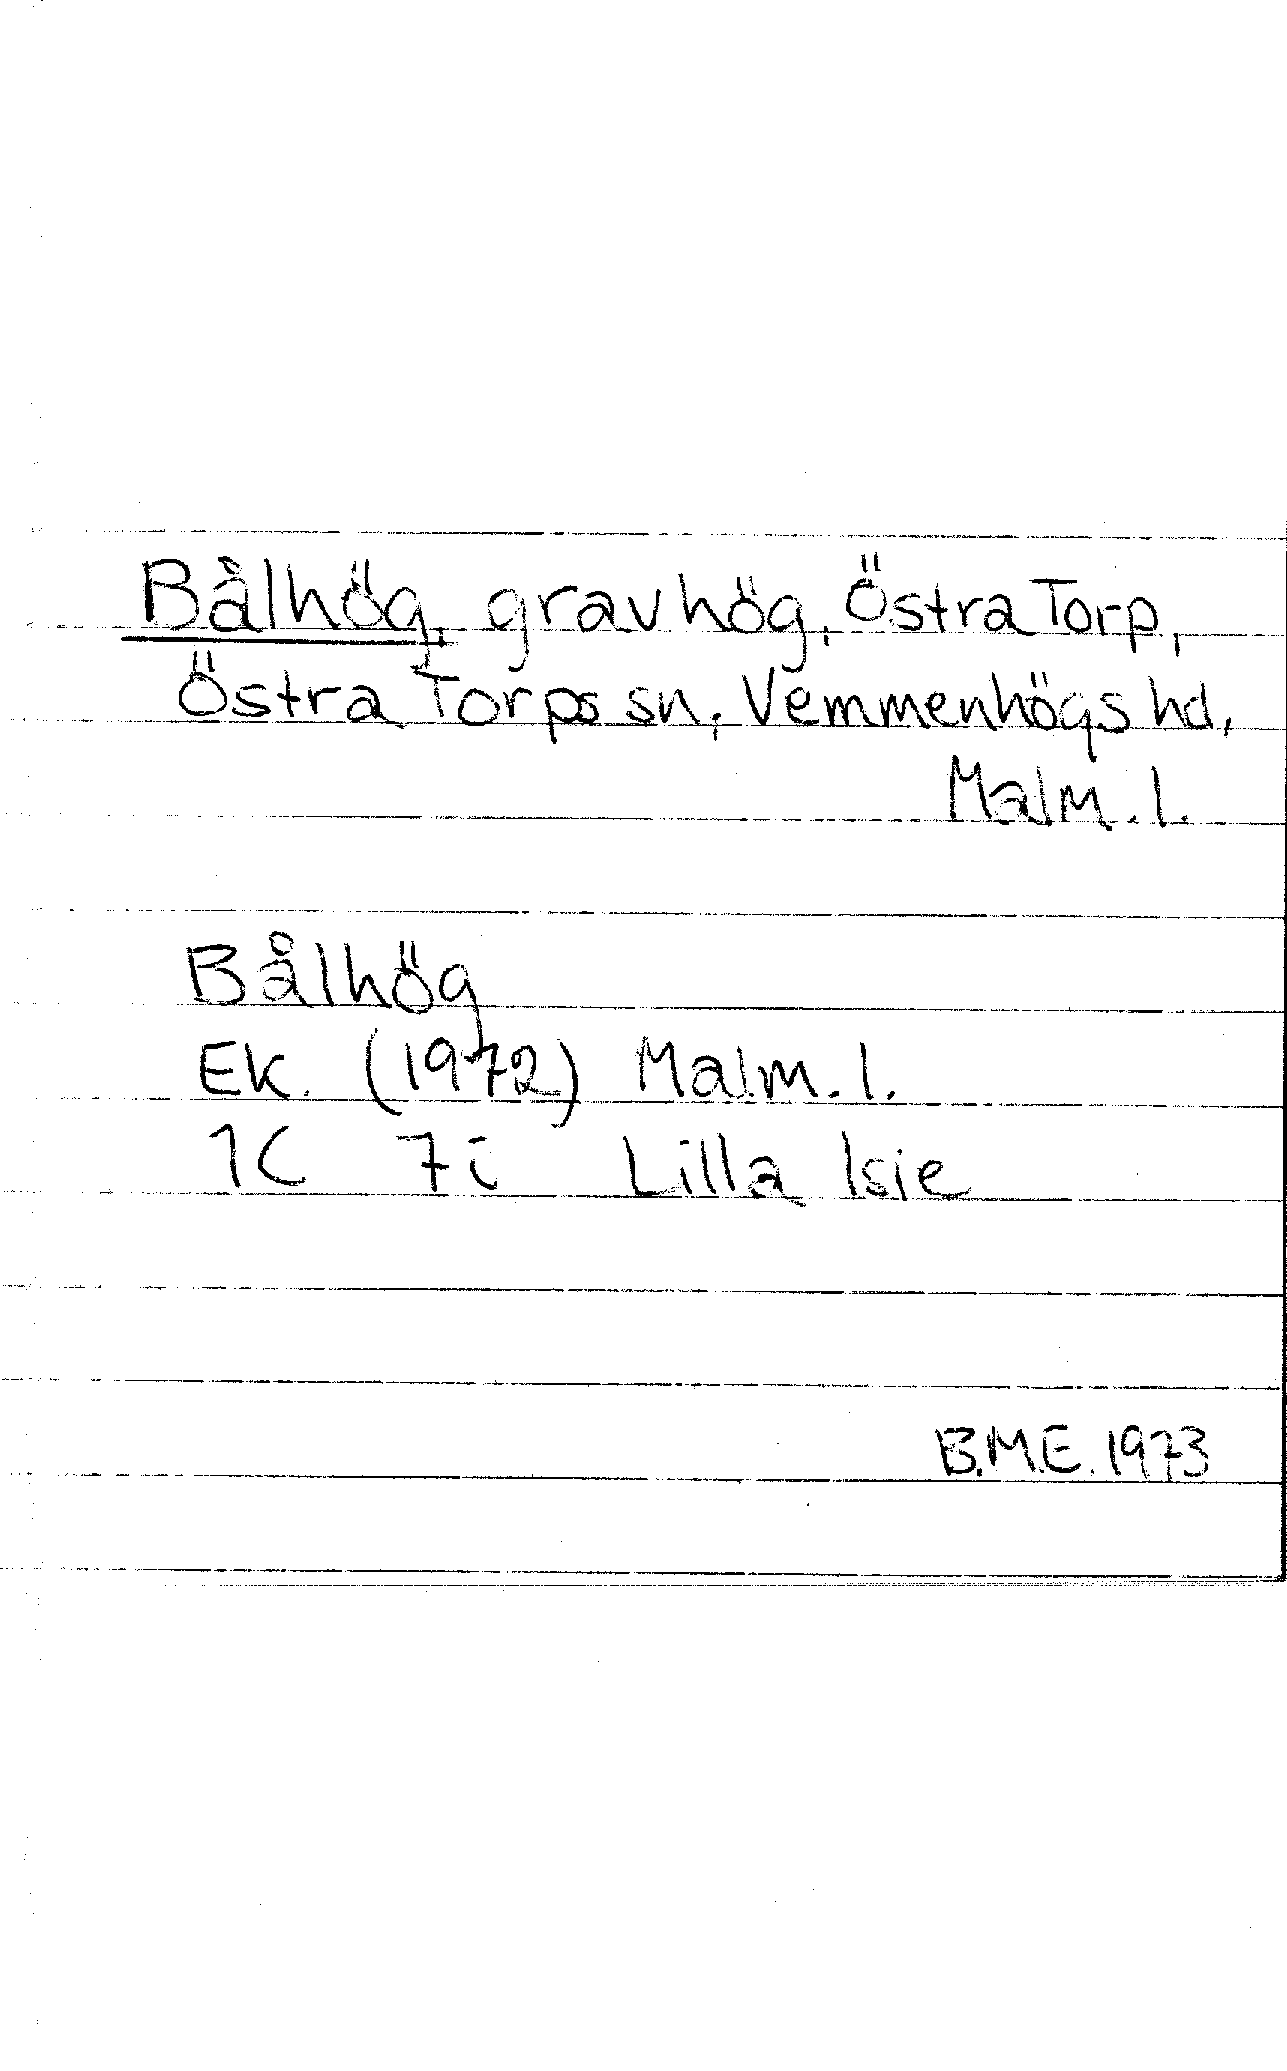 Bålhög, gravhög, Östra Torp,
Östra Torps sn, Vemmenhögs hd,
Malm. l.
Bålhög
Ek. (1972) Malm. l.
1C 7i Lilla Isie
B.M.E. 1973